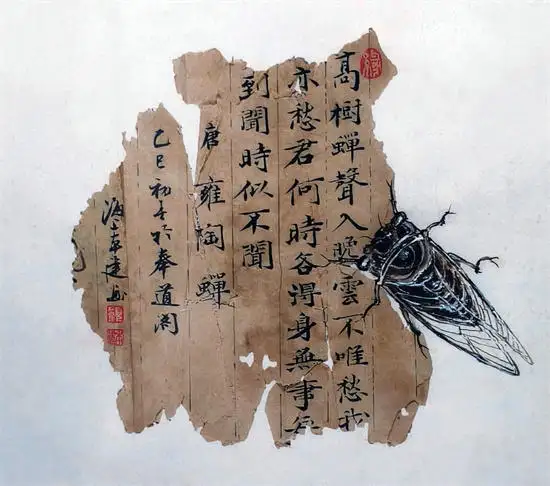 高樹蟬聲入晚雲不唯愁我
亦愁君何時各得身無事每
到聞時似不聞
唐 雍陶 蟬
乙巳初於奉道閣